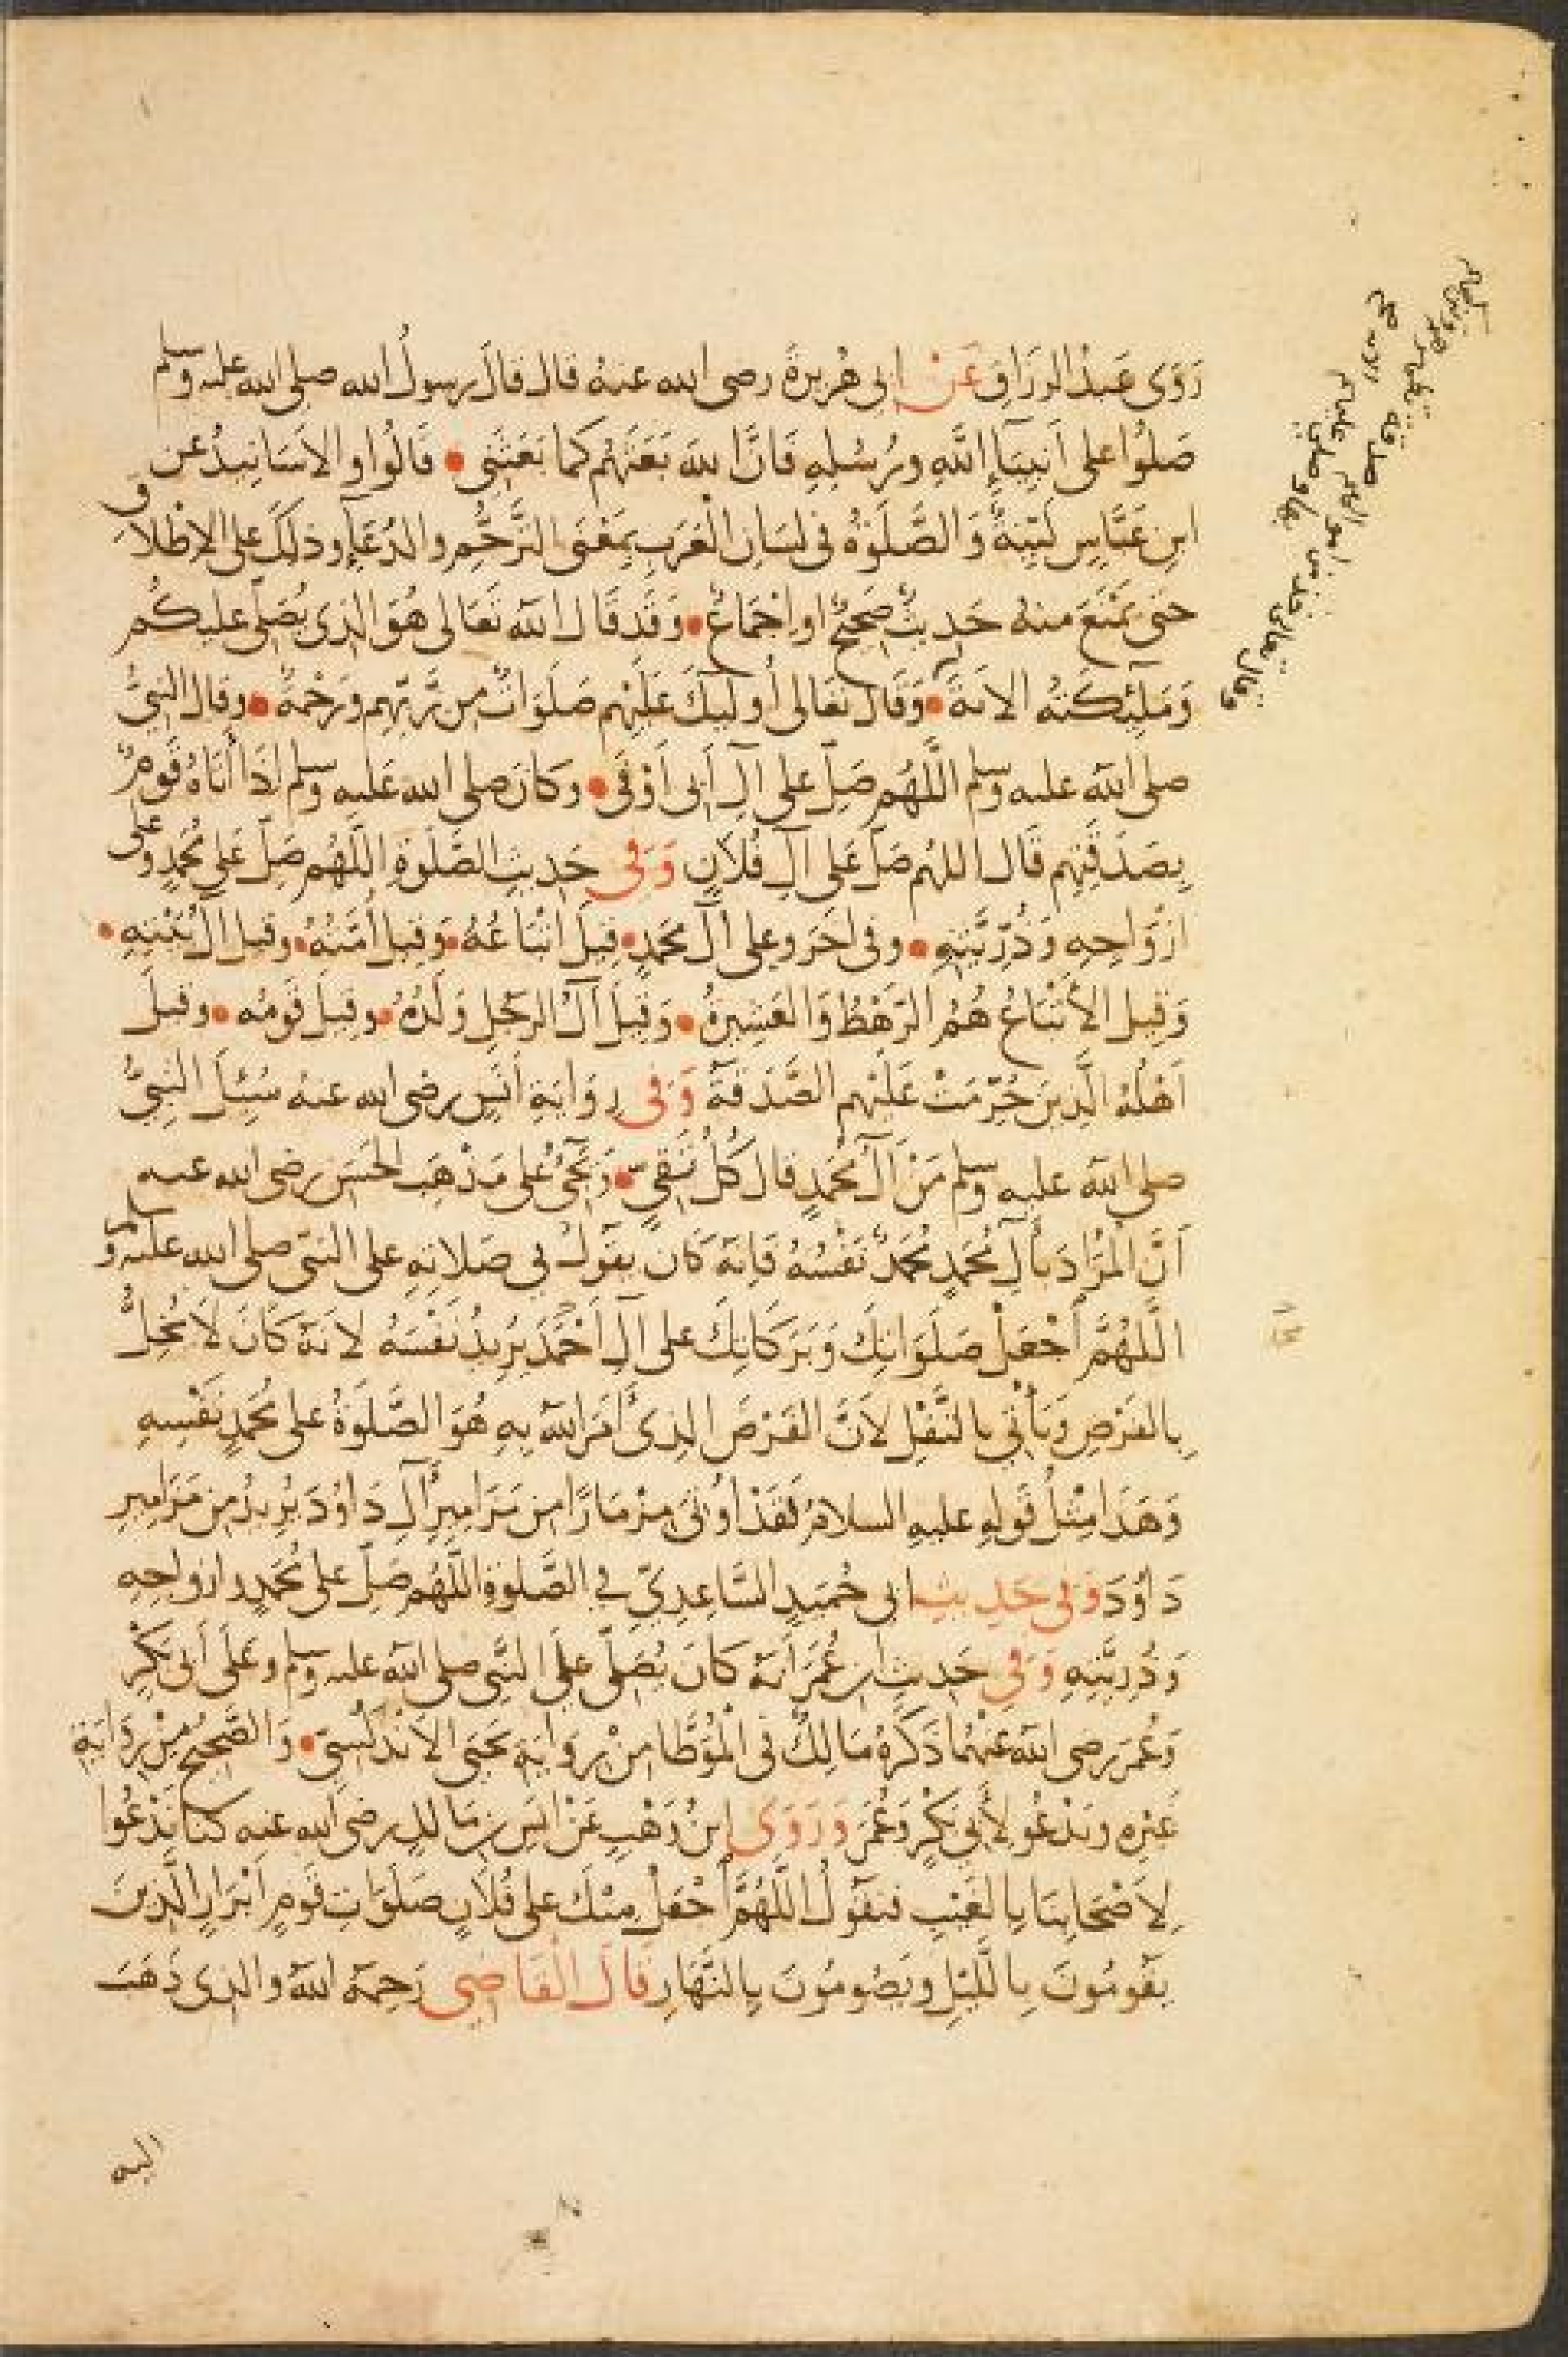 رَوَى عَبْدُ الرَزاقِ عَنْ ابى هُرَيرةَ رضى الله عنهُ قال قالَ رسولُ الله صلى الله عليه وسلم
صَلُّوا على أَنبِيَآءِ اللَّهِ ورُسُلِهِ فَانَّ الله بَعَثَهُم كما بَعَثَنِى • قَالُوا والاسَانِيدُ عن
ابنِ عَبَّاسٍ لَيِّنةٌ وَالصَّلَوٰةُ فى لِسَانِ الْعَرَبِ بِمَعْنَى التَّرَحُّمِ والدُعَآءِ وذلِكَ على الاِطْلَاقِ
حَتى يَمْنَعَ منهُ حَدِيثٌ صَحِيحٌ او اِجْمَاعٌ • وَقَد قَالَ اللهُ تَعَالى هُوَ الذى يُصَلّى عليكُم
وَمَلٰئِكَتُهُ الايَةَ • وَقَالَ تَعَالى أُولَٰئِكَ عَلَيْهِم صَلَوَاتٌ مِن رَّبِّهِم وَرَحْمَةٌ • وقال النبىُّ
صلى اللهُ عليه وسلم اللَّهُم صَلِّ على آلِ أَبى أَوْفَى • وكانَ صلى الله عَليهِ وسلم اذَا أَتَاهُ قَومٌ
بِصَدَقَتِهِم قَالَ اللهُم صَلّ عَلى آلِ فُلَانٍ وَفى حَدِيثِ الصَّلَوٰةِ اللَّهُم صَلّ عَلى مُحَمَّدٍ وعلى
ازْوَاجِهِ وَذُرِّيَّتِهِ • وفى اخَرَ وعلى آلِ مُحَمدٍ • قِيلَ اتْبَاعُهُ • وَقِيلَ أُمَّتُهُ • وقيلَ آلُ بَيْتِهِ •
وَقِيلَ الأَتْبَاعُ هُمُ الرَهْطُ وَالعَشِيرةُ • وَقِيلَ آلُ الرَجُلِ وَلَدُهُ • وقيلَ قَومُه • وقيلَ
أَهْلُهُ الَّذِينَ حُرِّمَتْ عَلَيْهِم الصَّدَقةُ وَفى رِوَايَةِ أَنَسٍ رضى الله عنهُ سُئِلَ النبىُّ
صلى اللهُ عليهِ وسلم مَنْ آلُ مُحَمدٍ قال كُلُّ تَقِىٍّ • وَيَجِئُ عَلى مَذْهَبِ الحَسَنِ رضى الله عنه
أَنَّ الْمُرَادَ بآلِ مُحَمدٍ مُحَمدٌ نَفْسُهُ فَانهُ كَانَ يقولُ فى صَلاتِهِ على النبى صلى الله عليه وسلم
اللَّهُمَّ اجْعَلْ صَلَوَاتِكَ وَبَرَكَاتِكَ على آلِ أَحْمَدَ يُرِيدُ نَفْسَهُ لانهُ كَانَ لَا يُخِلُّ
بِالفَرْضِ وَيَأْتِى بِالنَّفْلِ لأَنَّ الفَرْضَ الذِى أَمَرَ اللهُ بِهِ هُوَ الصَّلَوٰةُ على مُحَمدٍ نَفْسِهِ
وَهَذَا مِثْلُ قَولِهِ عليهِ السلامُ لَقَدْ اُوتِىَ مِزْمَارًا مِن مَزَامِيرِ آلِ دَاوُدَ يُرِيدُ مِن مَزَامِيرِ
دَاوُدَ وَفى حَدِيثِ ابى حُمَيدٍ السَّاعِدِىّ فى الصَّلوةِ اللَّهُم صَلّ على مُحَمدٍ وازواجِهِ
وَذُرِيَّتِهِ وَفى حَدِيثِ ابنِ عُمَرَ أَنهُ كَانَ يُصَلّى عَلَى النَّبى صلى اللهُ عليه وسلم وعَلَى أَبى بَكْرٍ
وَعُمَرَ رضى اللهُ عنهُمَا ذَكَرَهُ مَالِكٌ فى الْمُوَطَّا مِنْ رِوَايَةِ يَحيَى الاَنْدَلُسِىّ • وَالصَّحِيحُ مِنْ رِوَايَةِ
غَيْرِهِ ويَدْعُو لأَبى بَكْرٍ وَعُمَرَ وَرَوَى ابنُ وَهْبٍ عَنْ انَسِ بنِ مَالِكٍ رضى الله عنه كنا نَدْعُوا
لِأَصْحَابِنَا بِالْغَيْبِ فنقُولُ اللَّهُمَّ اجْعَلْ مِنْكَ على فُلَانٍ صَلَوَاتِ قَومٍ ابْرَارٍ الَّذِينَ
يَقُومُونَ بِاللَّيْلِ وَيَصُومُونَ بِالنَّهَارِ قَالَ الْقَاضِى رَحِمَهُ اللهُ والذى ذَهَبَ
اليه
وقال تعالى خذ من اموالهم صدقة تطهرهم
وتزكيهم بها وصل عليهم